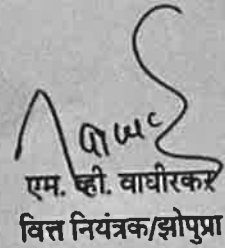 एम. व्ही. वाघीरकर
वित्त नियंत्रक/झोपुप्रा